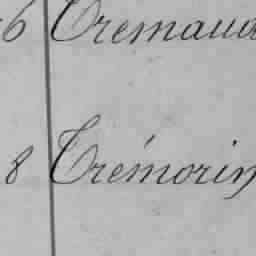 6 Tremaud
8 Trémorin